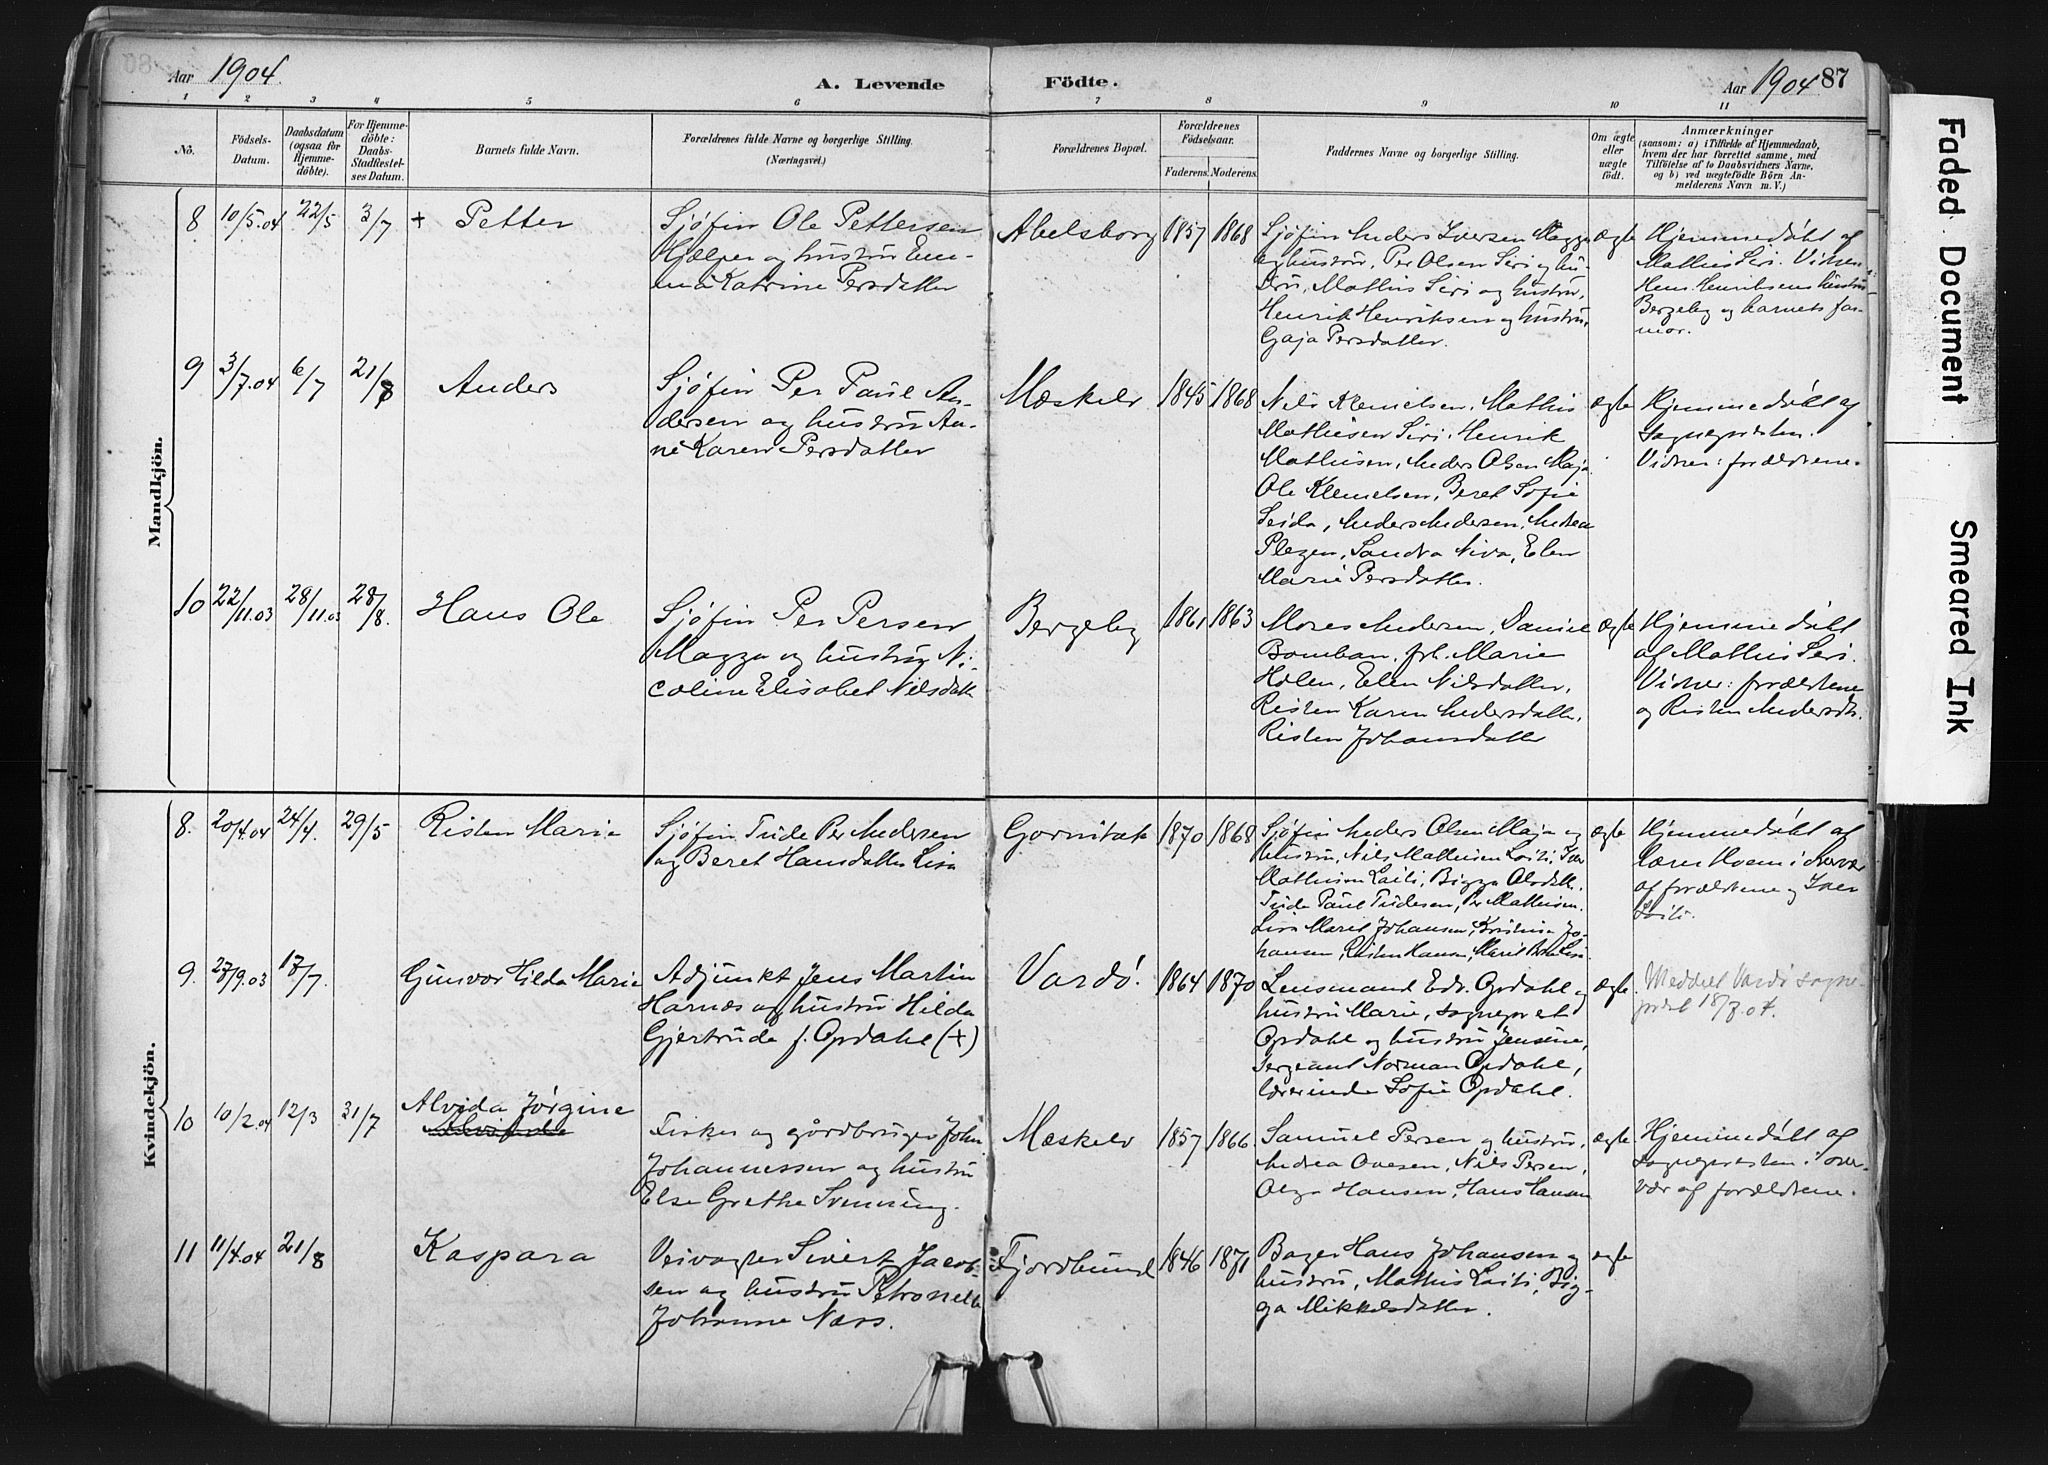 Aar 1904.
A. Levende
Födte.
Aar 1904 87
1 2 3 4 5 6 7 8 9 10 11
Nô.
Födsels-
Datum.
Daabsdatum
(ogsaa for
Hjemme-
döbte).
For Hjemme-
döbte:
Daabs-
Stadfæstel-
ses Datum.
Barnets fulde Navn.
Forældrenes fulde Navne og borgerlige Stilling.
(Næringsvei.)
Forældrenes Bopæl.
Forældrenes
Födselsaar.
Faderens. Moderens.
Faddernes Navne og borgerlige Stilling.
Om ægte
eller
uægte
födt.
Anmærkninger
(saasom: a) i Tilfælde af Hjemmedaab,
hvem der har forrettet samme, med
Tilföielse af to Daabsvidners Navne,
og b) ved uægtefödte Börn An-
melderens Navn m. V.)
Mandkjön.
8 10/5.04 22/5 3/7 + Petter
Sjøfin Ole Pettersen
Hjælper og hustru Em-
ma Katrine Persdatter
Abelsborg 1857 1868
Sjøfin Anders Iversen Magga
og hustru, Per Olsen Siri og hu-
stru, Mathis Siri og hustru,
Henrik Henriksen og hustru,
Gaja Persdatter.
ægte
Hjemmedøbt af
Mathis Siri. Vidner:
Hens. Henriksens hustru
Bergeby og barnets far-
mor.
9 3/7.04 6/7 21/8 Anders
Sjøfin Per Paul An-
dersen og hustru An-
ne Karen Persdatter
Mæskelv 1845 1868
Nils Klemetsen, Mathis
Mathisen Siri, Henrik
Mathisen, Anders Olsen Maja
Ole Klemetsen, Beret Sofie
Seida, Anders Andersen, Andrea
Plezen, Sandra Niva, Elen
Marie Persdatter.
ægte
Hjemmedøbt af
sognepresten.
Vidner: forældrene.
10 22/11.03 28/11.03 28/8. Hans Ole
Sjøfin Per Persen
Magga og hustru Ni-
coline Elisabet Nilsdatt
Bergeby 1861 1863
Moses Andersen, Daniel
Bomban, frk. Marie
Holen, Elen Nilsdatter,
Risten Karen Andersdatter,
Risten Johansdatter
ægte
Hjemmedøbt
af Mathis Siri.
Vidner: forældrene
og Risten Andersdtr.
Kvindekjön.
8. 20/4.04 24/4. 29/5 Risten Marie
Sjøfin Tude Per Andersen
og Beret Hansdatter Lisa
Gornitak 1870 1868
Sjøfin Anders Olsen Maja og
hustru, Nils Mathisen Laiti, Iver
Mathisen Laiti, Bigga Olsdtr.
Tude Paul Tudesen, Per Mathisen
Lisa Marit Johansen, Kristine Jo-
hansen, Risten Hansen, Marit
ægte
Hjemmedøbt af
lærer Hoem i nærvær
af forældrene og Iver
Laiti.
9. 27/9.03 17/7. Gunvor Hilda Marie
Adjunkt Jens Martin
Harnæs og hustru Hilda
Gjertrude f. Opdahl (+)
Vardö. 1864 1870
Lensmand Edv. Opdahl og
hustru Marie, sogneprest
Opdahl og hustru Jensine,
Sergeant Norman Opdahl,
lærerinde Sofie Opdahl.
ægte.
Meddelt Vardö sogne-
prest 18/7.04.
10 10/2.04 12/3 31/7 Alvida Jørgine
Fisker og gårdbruger John
Johannessen og hustru
Else Grethe Svenning.
Mæskelv 1857 1866
Samuel Persen og hustru,
Andrea Ovesen, Nils Persen,
Olga Hansen, Hans Hansen
ægte
Hjemmedøbt af
sognepresten i over-
vær af forældrene.
11 11/4.04 21/8 Kaspara
Veivogter Sivert Jacob-
sen og hustru Petronelle
Johanne Næss.
Fjordbund 1846 1871
Bager Hans Johansen og
hustru, Mathis Laiti, Big-
ga Mikkelsdatter.
ægte
Faded Document
Smeared Ink